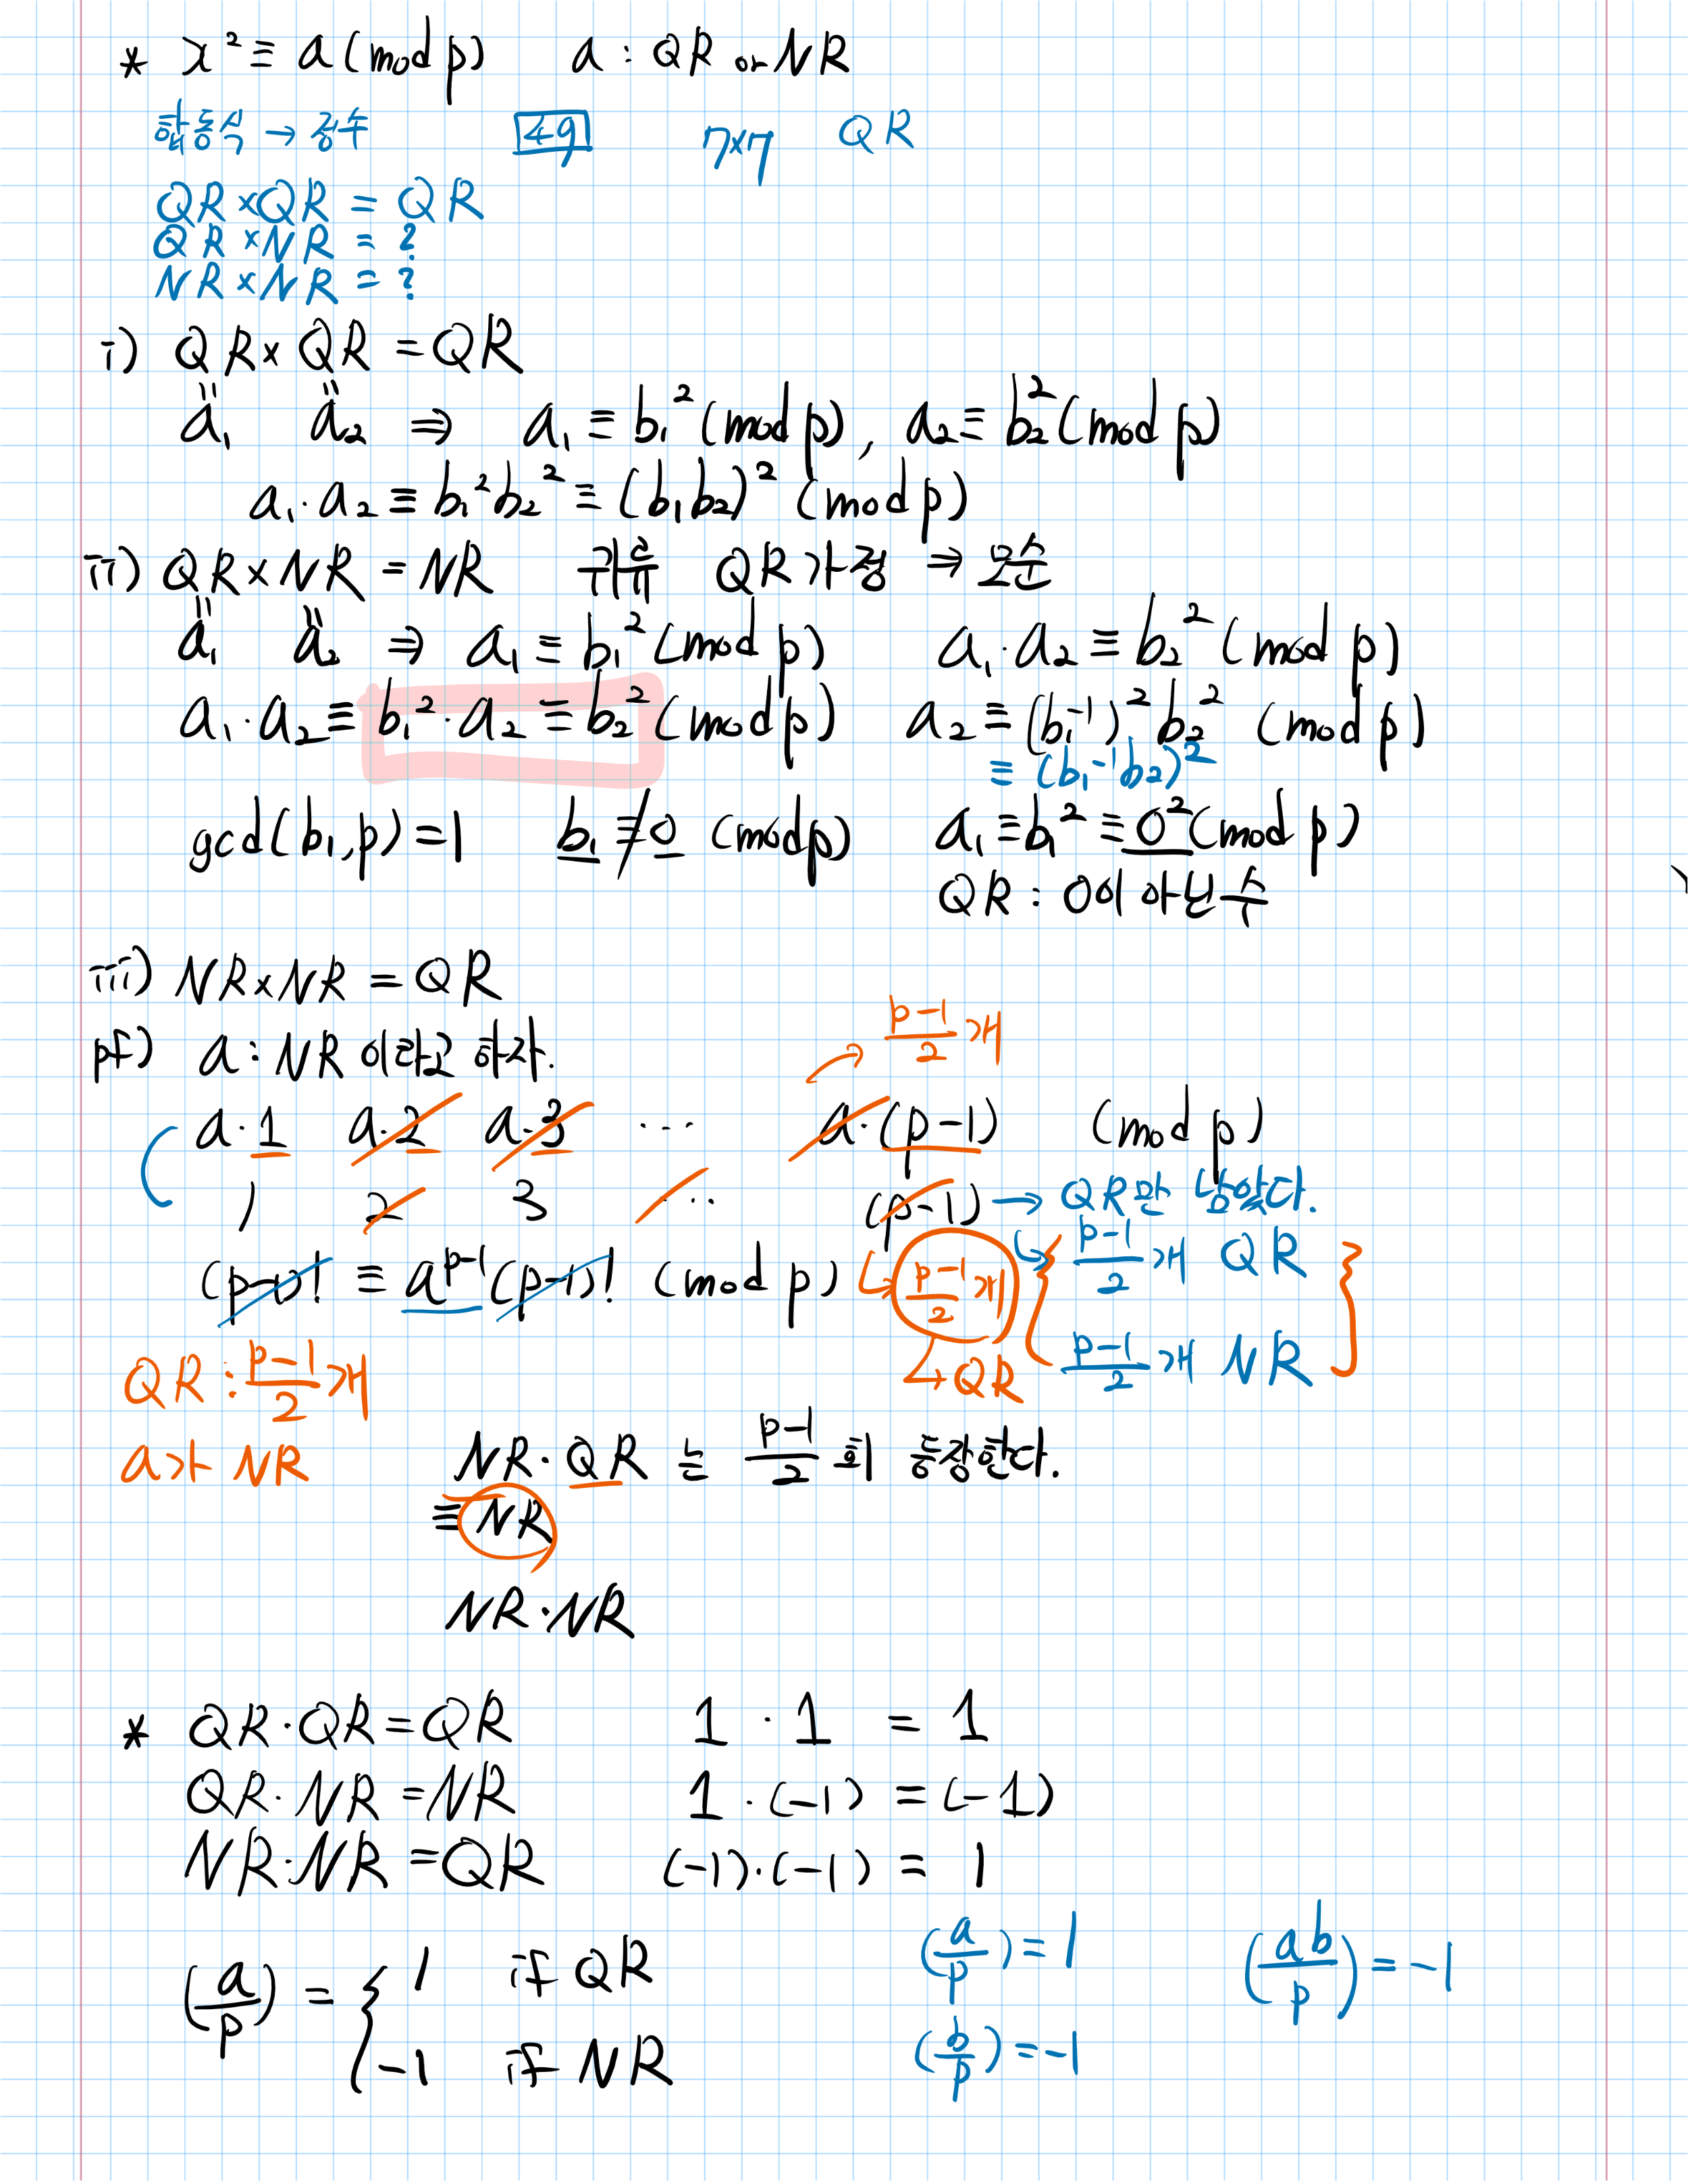 * x² ≡ a (mod p) a : QR or NR
합동식 → 정수 49 7×7 QR
QR×QR = QR
QR×NR = ?
NR×NR = ?
i) QR×QR = QR
a₁ a₂ ⇒ a₁ ≡ b₁² (mod p), a₂ ≡ b₂² (mod p)
a₁·a₂ ≡ b₁²b₂² ≡ (b₁b₂)² (mod p)
ii) QR×NR = NR 귀류 QR 가정 ⇒ 모순
a₁ a₂ ⇒ a₁ ≡ b₁² (mod p) a₁·a₂ ≡ b₂² (mod p)
a₁·a₂ ≡ b₁²·a₂ ≡ b₂² (mod p) a₂ ≡ (b₁⁻¹)²b₂² (mod p)
≡ (b₁⁻¹b₂)²
gcd(b₁,p)=1 b₁ ≢ 0 (mod p) a₁ ≡ b₁² ≡ 0² (mod p)
QR : 0이 아닌 수
iii) NR×NR = QR
(p-1)/2 개
pf) a : NR 이라고 하자.
a·1 a·2 a·3 ⋯ a·(p-1) (mod p)
1 2 3 ⋯ (p-1) → QR만 남았다.
(p-1)! ≡ a^(p-1) (p-1)! (mod p) (p-1)/2 개 { (p-1)/2 개 QR }
QR : (p-1)/2 개 → QR (p-1)/2 개 NR
a가 NR NR·QR 는 (p-1)/2 회 등장한다.
≡ NR
NR·NR
* QR·QR = QR 1 · 1 = 1
QR·NR = NR 1 · (-1) = (-1)
NR·NR = QR (-1)·(-1) = 1
(a/p) = { 1 if QR (a/p) = 1 (ab/p) = -1
-1 if NR (b/p) = -1